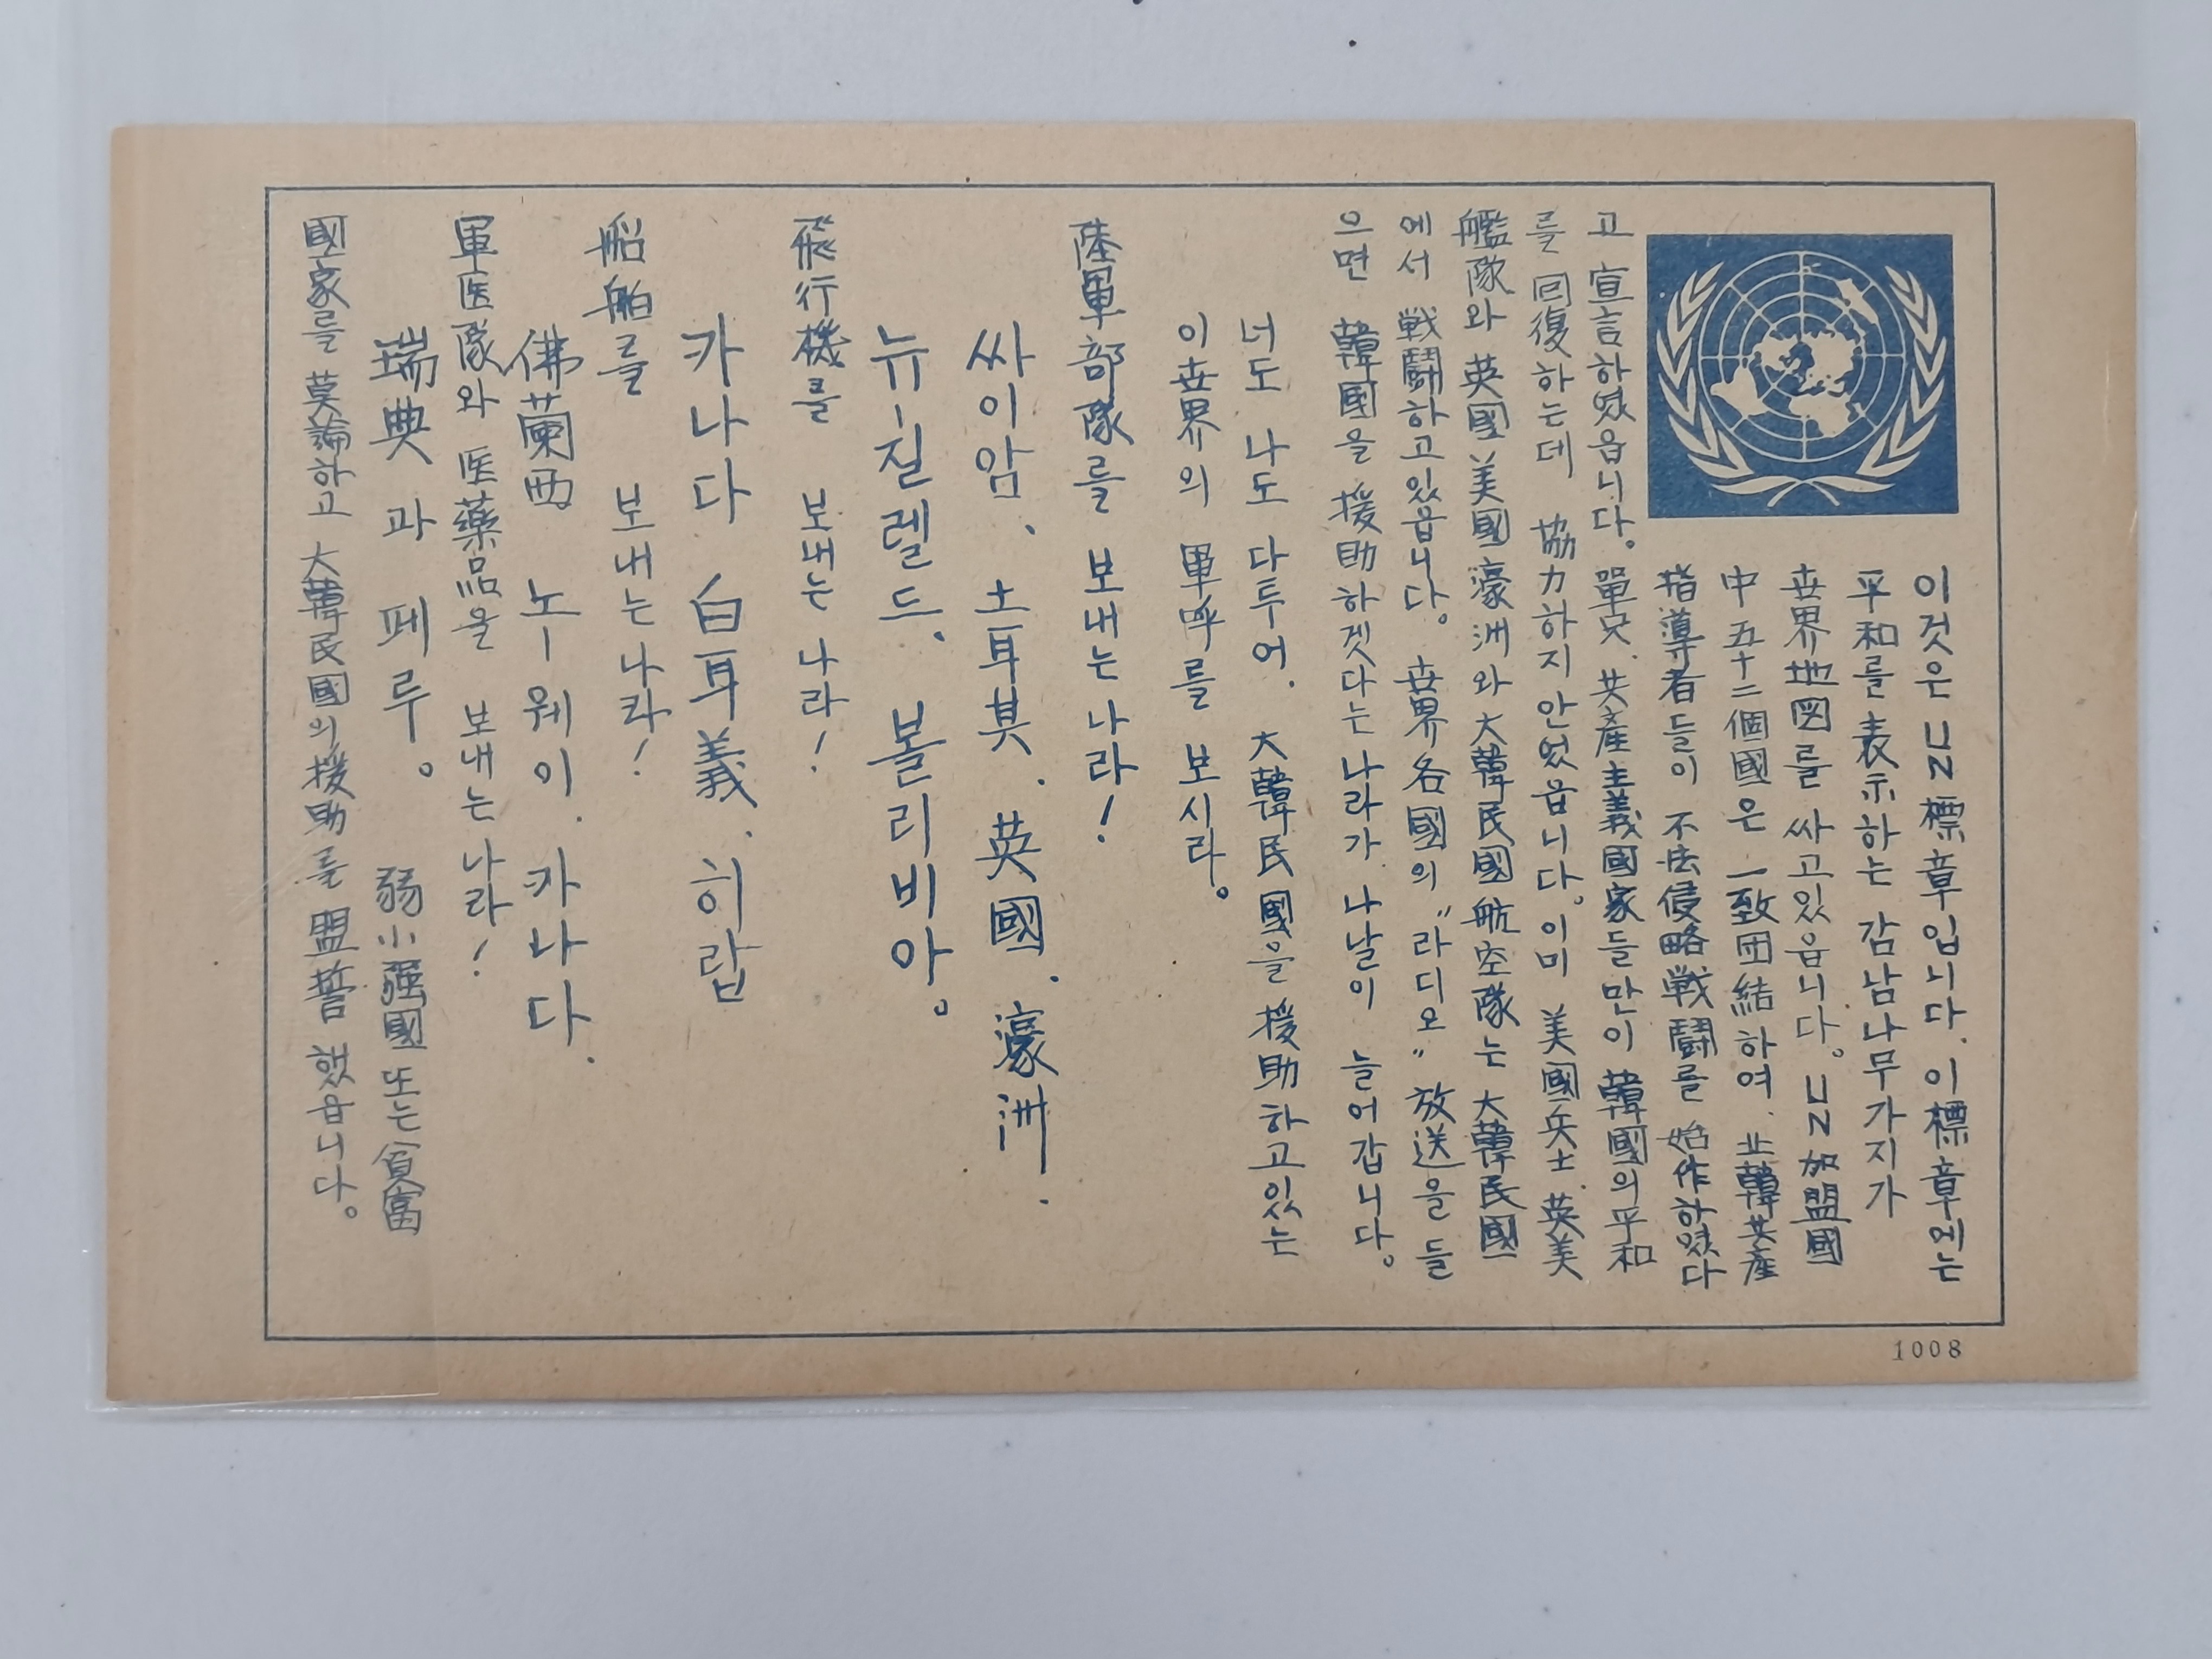 이것은 UN標章입니다. 이標章에는
平和를 表示하는 감남나무가지가
世界地図를 싸고있읍니다。UN加盟國
中 五十二個國은 一致団結하여. 北韓共産
指導者들이 不法侵略戦闘를 始作하였다
고 宣言하였읍니다。單只. 共産主義國家들만이 韓國의平和
를 回復하는데 協力하지 안었읍니다。이미 美國兵士. 英美
艦隊와 英國美國濠洲와 大韓民國航空隊는 大韓民國
에서 戦闘하고있읍니다。世界各國의 "라디오" 放送을 들
으면 韓國을 援助하겟다는 나라가 나날이 늘어갑니다。
너도 나도 다투어. 大韓民國을 援助하고있는
이世界의 軍呼를 보시라。
陸軍部隊를 보내는나라!
싸이암、土耳其. 英國. 濠洲.
뉴-질렌드、볼리비아。
飛行機를 보내는 나라!
카나다 白耳義. 히랍
船舶를 보내는나라!
佛蘭西 노-웨이. 카나다.
軍医隊와 医藥品을 보내는나라!
瑞典 과 페루。 弱小强國 또는 貧富
國家를 莫論하고 大韓民國의 援助를 盟誓 했읍니다。
1008